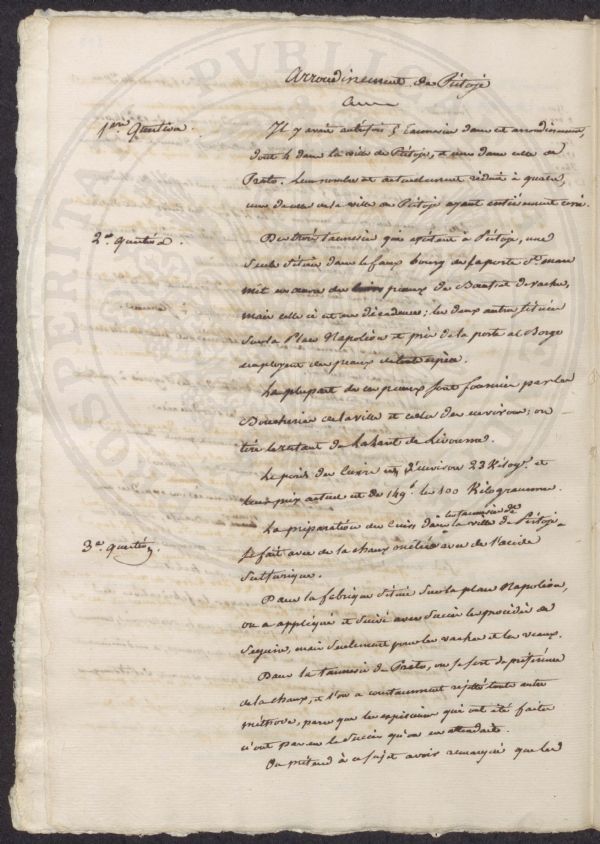 Arrondissement de Pistoje
1ere Question.
Il y avoit autrefois 5 Tanneries dans cet arrondissement,
dont 4 dans la ville de Pistoje, et une dans celle de
Prato. Leur nombre est actuellement réduit à quatre,
une de celles de la ville de Pistoje ayant entièrement cessé.
2e. Question.
Des trois Tanneries qui existent à Pistoje, une
seule située dans le faux bourg de la porte St. marc
met en œuvre des peaux de Bœuf et de vache,
mais celle ci est en décadence; les deux autres situées
sur la Place Napoléon et près de la porte al Borgo
employent des peaux de toute espèce.
La plupart de ces peaux sont fournies par les
Boucheries de la ville et celles des environs; on
tire le restant de Livourne.
Le poids des Cuirs est d'environ 23 Kilog. et
leur prix actuel est de 149f. les 100 Kilogrammes.
3e. question.
La préparation des Cuirs dans les tanneries de la ville de Pistoje
se fait avec de la chaux mêlée avec de l'acide
sulfurique.
Dans la fabrique située sur la place Napoléon,
on a appliqué et suivi avec succès le procédé de
Seguin, mais seulement pour les vaches et les veaux.
Dans la tannerie de Prato, on se sert de préférence
de la chaux, et l'on a constamment rejetté toute autre
méthode, parce que les expériences qui ont été faites
n'ont pas eu le succès qu'on en attendait.
On prétend à ce sujet avoir remarqué que les